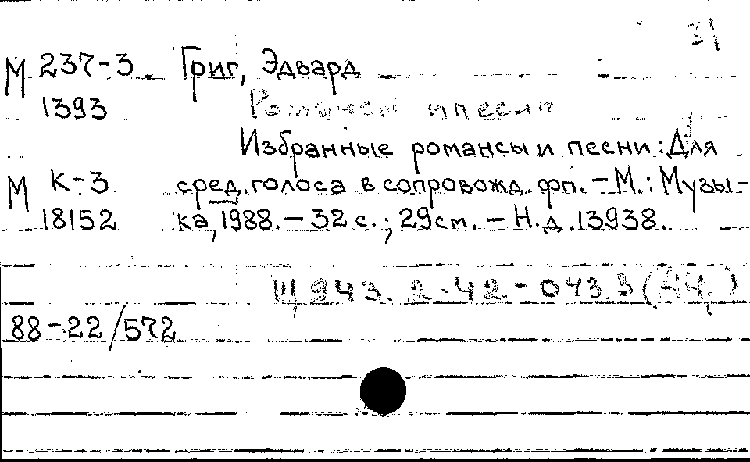 31
М 237-3 Григ, Эдвард
1393 Романсы и песни
Избранные романсы и песни: Для
М К-3 сред. голоса в сопровожд. фп. - М.: Музы-
18152 ка, 1988. - 32 с.; 29 см. - Н.д. 13938.
Щ 943.2-42-043.3
88-22/572